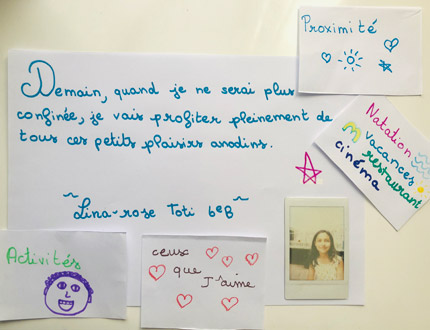 Proximité
Demain, quand je ne serai plus
confinée, je vais profiter pleinement de
tous ces petits plaisirs anodins.
~Lina-rose Toti 6eB~
Natation
vacances
restaurant
cinéma
Activités
ceux
que
J'aime